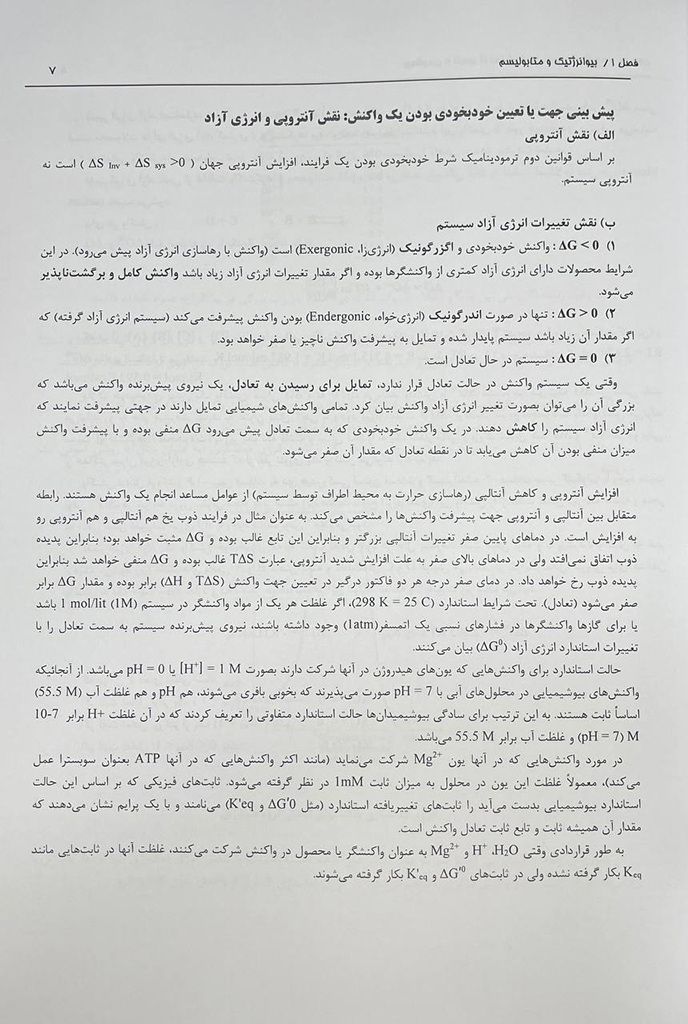 فصل ۱/ بیوانرژتیک و متابولیسم
۷
پیش بینی جهت یا تعیین خودبخودی بودن یک واکنش: نقش آنتروپی و انرژی آزاد
الف) نقش آنتروپی
بر اساس قوانین دوم ترمودینامیک شرط خودبخودی بودن یک فرایند، افزایش آنتروپی جهان ( ΔS Inv + ΔS sys >0 ) است نه
آنتروپی سیستم.
ب) نقش تغییرات انرژی آزاد سیستم
۱) ΔG < 0: واکنش خودبخودی و اگزرگونیک (انرژی‌زا، Exergonic) است (واکنش با رهاسازی انرژی آزاد پیش می‌رود). در این
شرایط محصولات دارای انرژی آزاد کمتری از واکنشگرها بوده و اگر مقدار تغییرات انرژی آزاد زیاد باشد واکنش کامل و برگشت‌ناپذیر
می‌شود.
۲) ΔG > 0: تنها در صورت اندرگونیک (انرژی‌خواه، Endergonic) بودن واکنش پیشرفت می‌کند (سیستم انرژی آزاد گرفته) که
اگر مقدار آن زیاد باشد سیستم پایدار شده و تمایل به پیشرفت واکنش ناچیز یا صفر خواهد بود.
۳) ΔG = 0: سیستم در حال تعادل است.
وقتی یک سیستم واکنش در حالت تعادل قرار ندارد، تمایل برای رسیدن به تعادل، یک نیروی پیش‌برنده واکنش می‌باشد که
بزرگی آن را می‌توان بصورت تغییر انرژی آزاد واکنش بیان کرد. تمامی واکنش‌های شیمیایی تمایل دارند در جهتی پیشرفت نمایند که
انرژی آزاد سیستم را کاهش دهند. در یک واکنش خودبخودی که به سمت تعادل پیش می‌رود ΔG منفی بوده و با پیشرفت واکنش
میزان منفی بودن آن کاهش می‌یابد تا در نقطه تعادل که مقدار آن صفر می‌شود.
افزایش آنتروپی و کاهش آنتالپی (رهاسازی حرارت به محیط اطراف توسط سیستم) از عوامل مساعد انجام یک واکنش هستند. رابطه
متقابل بین آنتالپی و آنتروپی جهت پیشرفت واکنش‌ها را مشخص می‌کند. به عنوان مثال در فرایند ذوب یخ هم آنتالپی و هم آنتروپی رو
به افزایش است. در دماهای پایین صفر تغییرات آنتالپی بزرگتر و بنابراین این تابع غالب بوده و ΔG مثبت خواهد بود؛ بنابراین پدیده
ذوب اتفاق نمی‌افتد ولی در دماهای بالای صفر به علت افزایش شدید آنتروپی، عبارت TΔS غالب بوده و ΔG منفی خواهد شد بنابراین
پدیده ذوب رخ خواهد داد. در دمای صفر درجه هر دو فاکتور درگیر در تعیین جهت واکنش (TΔS و ΔH) برابر بوده و مقدار ΔG برابر
صفر می‌شود (تعادل). تحت شرایط استاندارد (298 K = 25 C)، اگر غلظت هر یک از مواد واکنشگر در سیستم 1 mol/lit (1M) باشد
یا برای گازها واکنشگرها در فشارهای نسبی یک اتمسفر(1atm) وجود داشته باشند، نیروی پیش‌برنده سیستم به سمت تعادل را با
تغییرات استاندارد انرژی آزاد (ΔG⁰) بیان می‌کنند.
حالت استاندارد برای واکنش‌هایی که یون‌های هیدروژن در آنها شرکت دارند بصورت [H⁺] = 1 M یا pH = 0 می‌باشد. از آنجائیکه
واکنش‌های بیوشیمیایی در محلول‌های آبی با pH = 7 صورت می‌پذیرند که بخوبی بافری می‌شوند، هم pH و هم غلظت آب (55.5 M)
اساساً ثابت هستند. به این ترتیب برای سادگی بیوشیمیدان‌ها حالت استاندارد متفاوتی را تعریف کردند که در آن غلظت H+ برابر 10-7
M (pH = 7) و غلظت آب برابر 55.5 M می‌باشد.
در مورد واکنش‌هایی که در آنها یون Mg²⁺ شرکت می‌نماید (مانند اکثر واکنش‌هایی که در آنها ATP بعنوان سوبسترا عمل
می‌کند)، معمولاً غلظت این یون در محلول به میزان ثابت 1mM در نظر گرفته می‌شود. ثابت‌های فیزیکی که بر اساس این حالت
استاندارد بیوشیمیایی بدست می‌آید را ثابت‌های تغییریافته استاندارد (مثل ΔG′0 و K′eq) می‌نامند و با یک پرایم نشان می‌دهند که
مقدار آن همیشه ثابت و تابع ثابت تعادل واکنش است.
به طور قراردادی وقتی H₂O، H⁺ و Mg²⁺ به عنوان واکنشگر یا محصول در واکنش شرکت می‌کنند، غلظت آنها در ثابت‌هایی مانند
Keq بکار گرفته نشده ولی در ثابت‌های ΔG′⁰ و K′eq بکار گرفته می‌شوند.